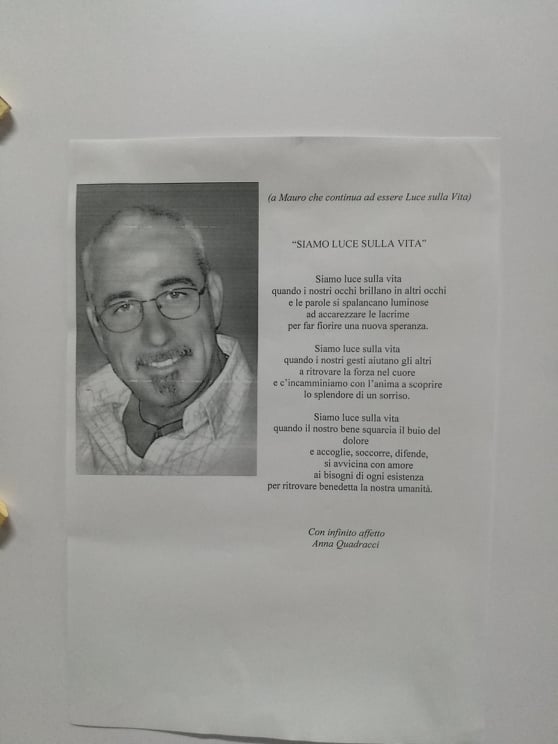 (a Mauro che continua ad essere Luce sulla Vita)
“SIAMO LUCE SULLA VITA”
Siamo luce sulla vita
quando i nostri occhi brillano in altri occhi
e le parole si spalancano luminose
ad accarezzare le lacrime
per far fiorire una nuova speranza.
Siamo luce sulla vita
quando i nostri gesti aiutano gli altri
a ritrovare la forza nel cuore
e c’incamminiamo con l’anima a scoprire
lo splendore di un sorriso.
Siamo luce sulla vita
quando il nostro bene squarcia il buio del
dolore
e accoglie, soccorre, difende,
si avvicina con amore
ai bisogni di ogni esistenza
per ritrovare benedetta la nostra umanità.
Con infinito affetto
Anna Quadracci